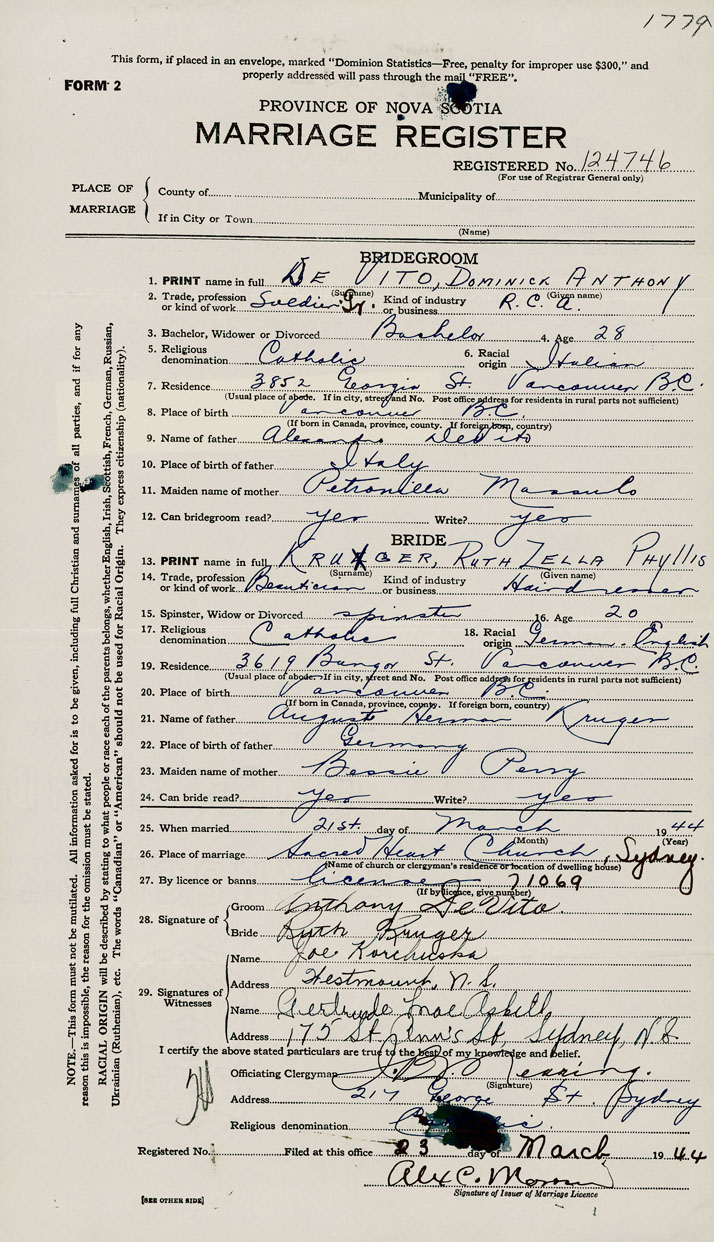 1779
This form, if placed in an envelope, marked "Dominion Statistics—Free, penalty for improper use $300," and
properly addressed will pass through the mail "FREE".
FORM 2
PROVINCE OF NOVA SCOTIA
MARRIAGE REGISTER
REGISTERED No. 124746
(For use of Registrar General only)
PLACE OF MARRIAGE
County of Municipality of
If in City or Town
(Name)
BRIDEGROOM
1. PRINT name in full DE VITO, DOMINICK ANTHONY
(Surname) (Given name)
2. Trade, profession or kind of work Soldier Gr. Kind of industry or business R.C.A.
3. Bachelor, Widower or Divorced Bachelor 4. Age 28
5. Religious denomination Catholic 6. Racial origin Italian
7. Residence 3852 Georgia St. Vancouver B.C.
(Usual place of abode. If in city, street and No. Post office address for residents in rural parts not sufficient)
8. Place of birth Vancouver B.C.
(If born in Canada, province, county. If foreign born, country)
9. Name of father Alexandro DeVito
10. Place of birth of father Italy
11. Maiden name of mother Petronilla Massulo
12. Can bridegroom read? yes Write? yes
BRIDE
13. PRINT name in full KRUGER, RUTH ZELLA PHYLLIS
(Surname) (Given name)
14. Trade, profession or kind of work Beautician Kind of industry or business Hairdresser
15. Spinster, Widow or Divorced spinster 16. Age 20
17. Religious denomination Catholic 18. Racial origin German-English
19. Residence 3619 Bangor St. Vancouver B.C.
(Usual place of abode. If in city, street and No. Post office address for residents in rural parts not sufficient)
20. Place of birth Vancouver B.C.
(If born in Canada, province, county. If foreign born, country)
21. Name of father August Herman Kruger
22. Place of birth of father Germany
23. Maiden name of mother Bessie Perry
24. Can bride read? yes Write? yes
25. When married 21st. day of March 1944
(Month) (Year)
26. Place of marriage Sacred Heart Church, Sydney.
(Name of church or clergyman's residence or location of dwelling house)
27. By licence or banns license 71069
(If by licence, give number)
28. Signature of
Groom Anthony DeVito.
Bride Ruth Kruger
29. Signatures of Witnesses
Name Joe Korchuska
Address Westmount, N.S.
Name Gertrude Mae
Address 175 St. Ann's St, Sydney, N.S
I certify the above stated particulars are true to the best of my knowledge and belief.
Officiating Clergyman
(Signature)
Address 217 George St. Sydney
Religious denomination
Registered No. Filed at this office 23 day of March 1944
Alex C.
Signature of Issuer of Marriage Licence
[SEE OTHER SIDE]
NOTE.—This form must not be mutilated. All information asked for is to be given, including full Christian and surnames of all parties, and if for any
reason this is impossible, the reason for the omission must be stated.
RACIAL ORIGIN will be described by stating to what people or race each of the parents belongs, whether English, Irish, Scottish, French, German, Russian,
Ukrainian (Ruthenian), etc. The words "Canadian" or "American" should not be used for Racial Origin. They express citizenship (nationality).